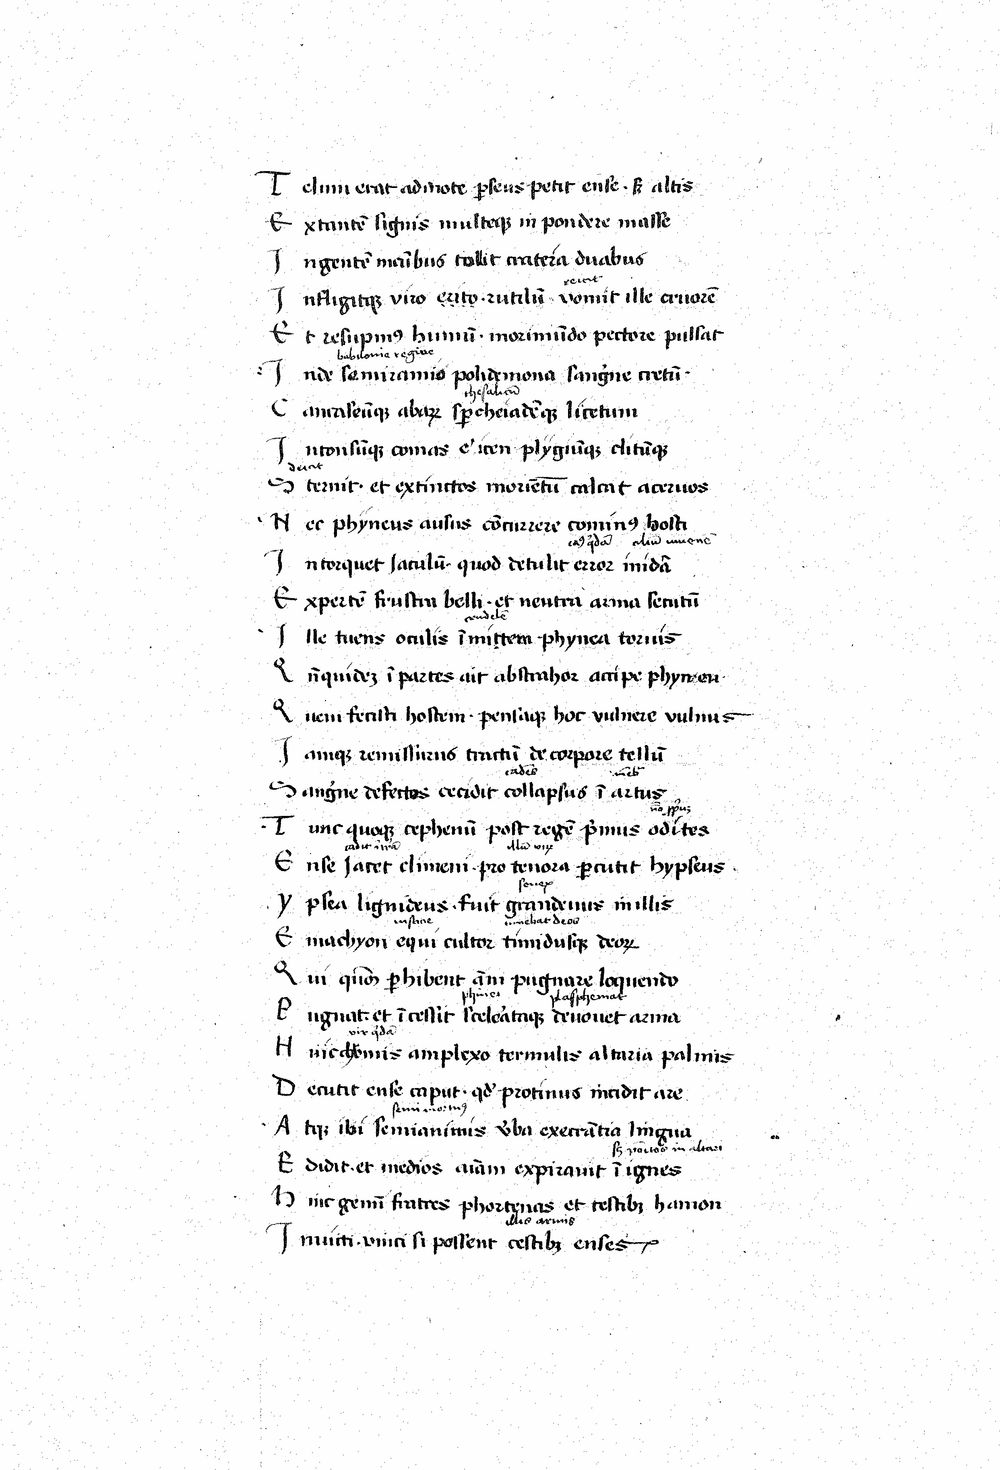 T elum erat admote ꝑseus petit ense · sꝫ altis
E xtantẽ signis multeqꝫ in pondere masse
I ngentẽ mãibus tollit cratera duabus
reicit
I nfligitqꝫ viro erito · rutilũ vomit ille cruorẽ
E t resupinꝰ humũ · morimũdo pectore pulsat
babilonie regine
I nde semiramio polidemona sangͥne cretũ ·
thesalicũ
C aucaseũqꝫ abaꝝ sꝑcheiadẽqꝫ licetum
I ntonsũqꝫ comas elicen plygiũqꝫ clitũqꝫ
deicit
S ternit · et extinctos moriẽtũ calcat aceruos
N ec phyneus ausus cõcurrere cominꝰ hosti
I ntorquet Jaculũ · quod detulit error in idã
E xpertẽ frustra belli · et neutra arma secutũ
crudelẽ
I lle tuens oculis ĩmittem phynea toruis
Q ñquidez ĩ partes ait abstrahor accipe phyneu
Q uem fecisti hostem · pensaqꝫ hoc vulnere vulnus
I amqꝫ remissurus tractũ de corpore tellũ
S angͥne defectos cecidit collapsus ĩ artus
T unc quoqꝫ cephenũ post regẽ pͥmus odites
E nse Jacet climeni · pro tenora ꝑcutit hypseus ·
senex
Y psea lignideus · fuit grandeuus in illis
iusticie timebat deos
E machyon equi cultor timidusqꝫ deoꝝ
Q ui qm̃ ꝑhibent ãni pugnare loquendo
phinei plasphemat
P ugnat · et ĩcessit sceleͣtaqꝫ deuouet arma
vir qͥdã
H uic chomis amplexo termulis altaria palmis
D ecutit ense caput · qd̾ protinus incidit are
semi mortuꝰ
A tqꝫ ibi semianimis v̾ba execrãtia lingua
E didit · et medios aĩam expirauit ĩ ignes
H inc gemĩ fratres phortenas et testibꝫ hamon
illis armis
I nuicti · vinci si possent cestibꝫ enses